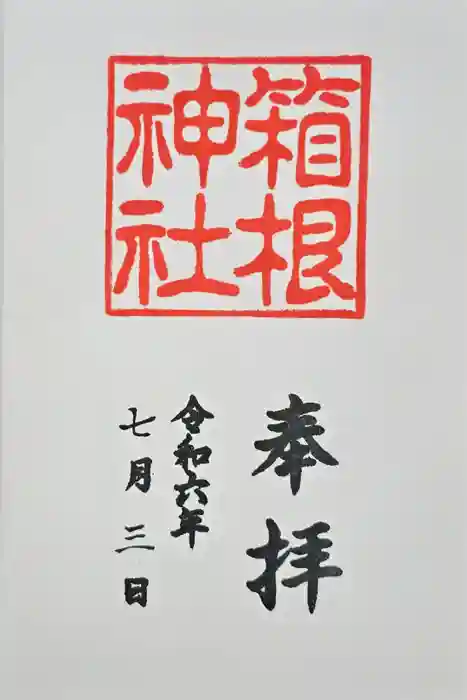 箱根
神社
奉拝
令和六年
七月三日